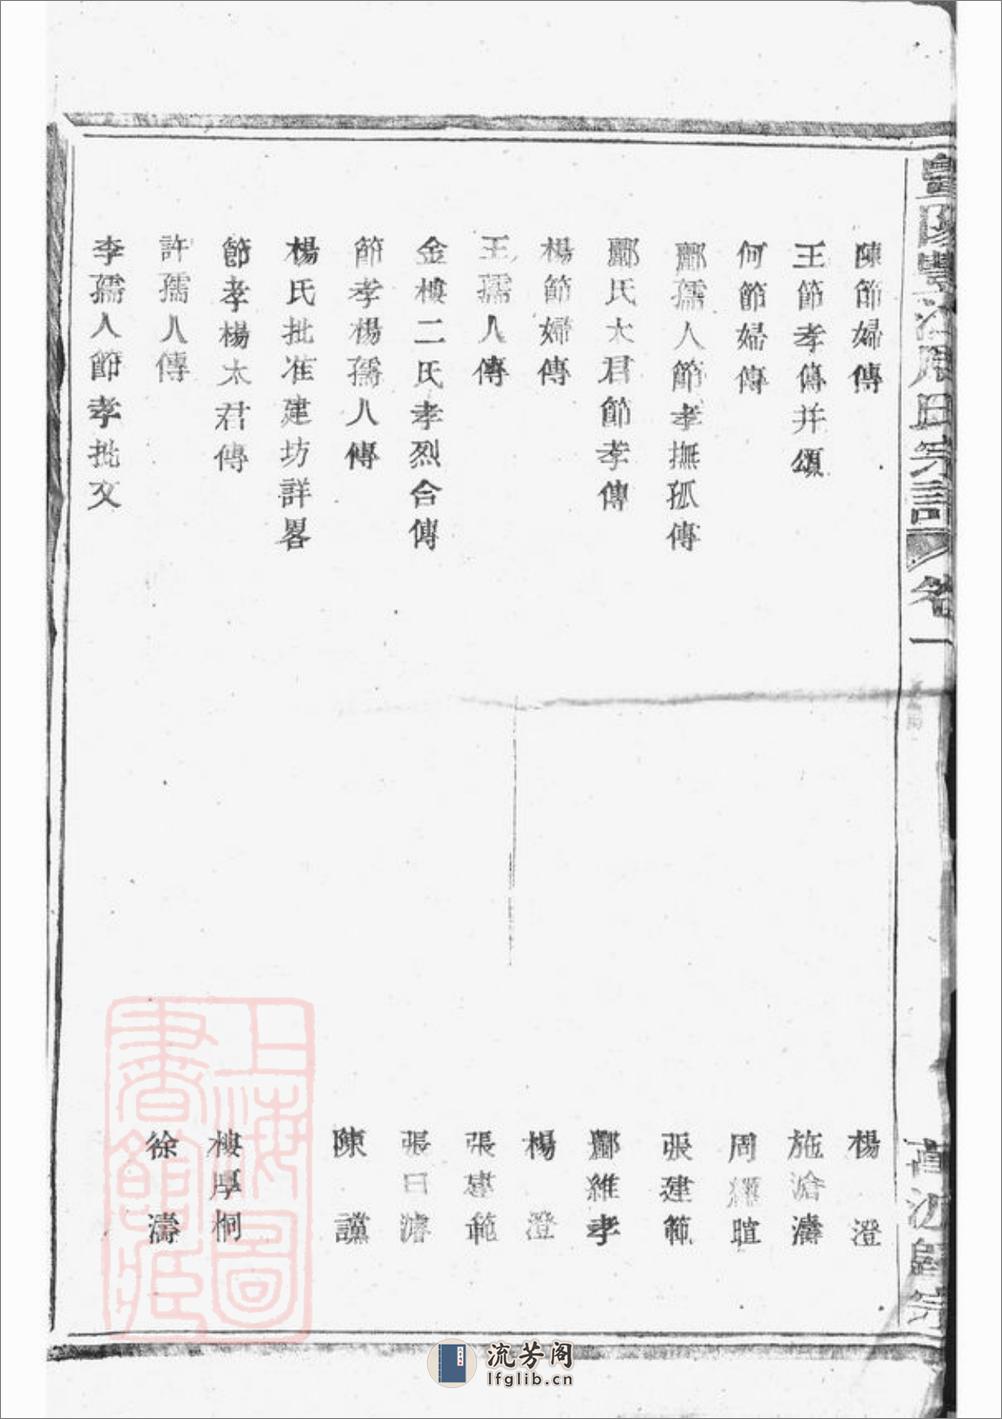 陳節婦傳 楊澄
王節孝傳并頌 施滄濤
何節婦傳 周 暄
酈孺人節孝撫孤傳 張建範
酈氏太君節孝傳 酈維孝
楊節婦傳 楊澄
王孺人傳 張建範
金樓二氏孝烈合傳 張日濬
節孝楊孺人傳 陳讜
楊氏批准建坊詳畧
節孝楊太君傳 樓厚桐
許孺人傳 徐濤
李孺人節孝批文
周氏宗譜 卷一
上海圖書館藏
流芳阁
lfglib.cn